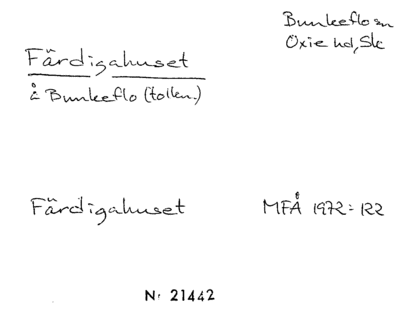 Bunkeflo sn
Oxie hd, Sk
Färdigahuset
å Bunkeflo (tollkn.)
Färdigahuset MFÅ 1972:122
Nr 21442